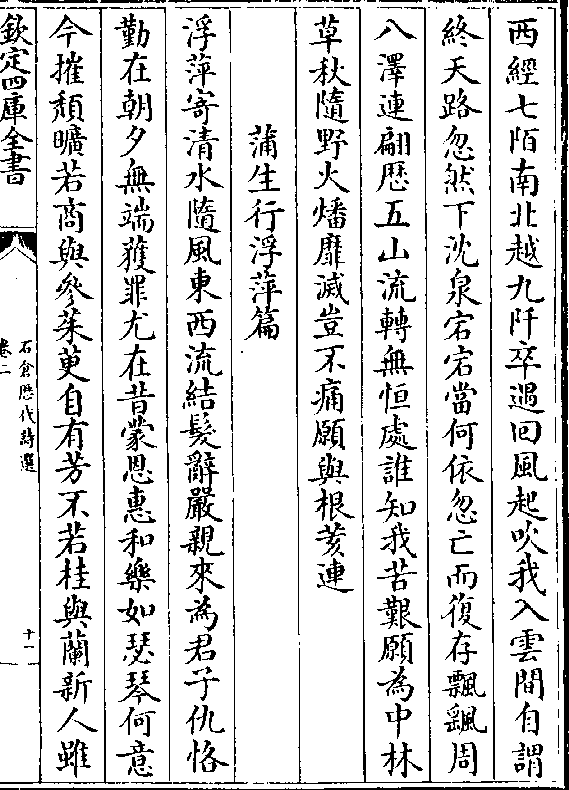 西經七陌南北越九阡卒遇回風起吹我入雲間自謂
終天路忽然下沈泉宕宕當何依忽亡而復存飄飄周
八澤連翩歷五山流轉無恒處誰知我苦艱願為中林
草秋隨野火燔靡滅豈不痛願與根荄連
蒲生行浮萍篇
浮萍寄清水隨風東西流結髮辭嚴親來為君子仇恪
勤在朝夕無端獲罪尤在昔蒙恩惠和樂如瑟琴何意
今摧頹曠若商與參茱萸自有芳不若桂與蘭新人雖
欽定四庫全書
石倉歷代詩選
卷二
十一